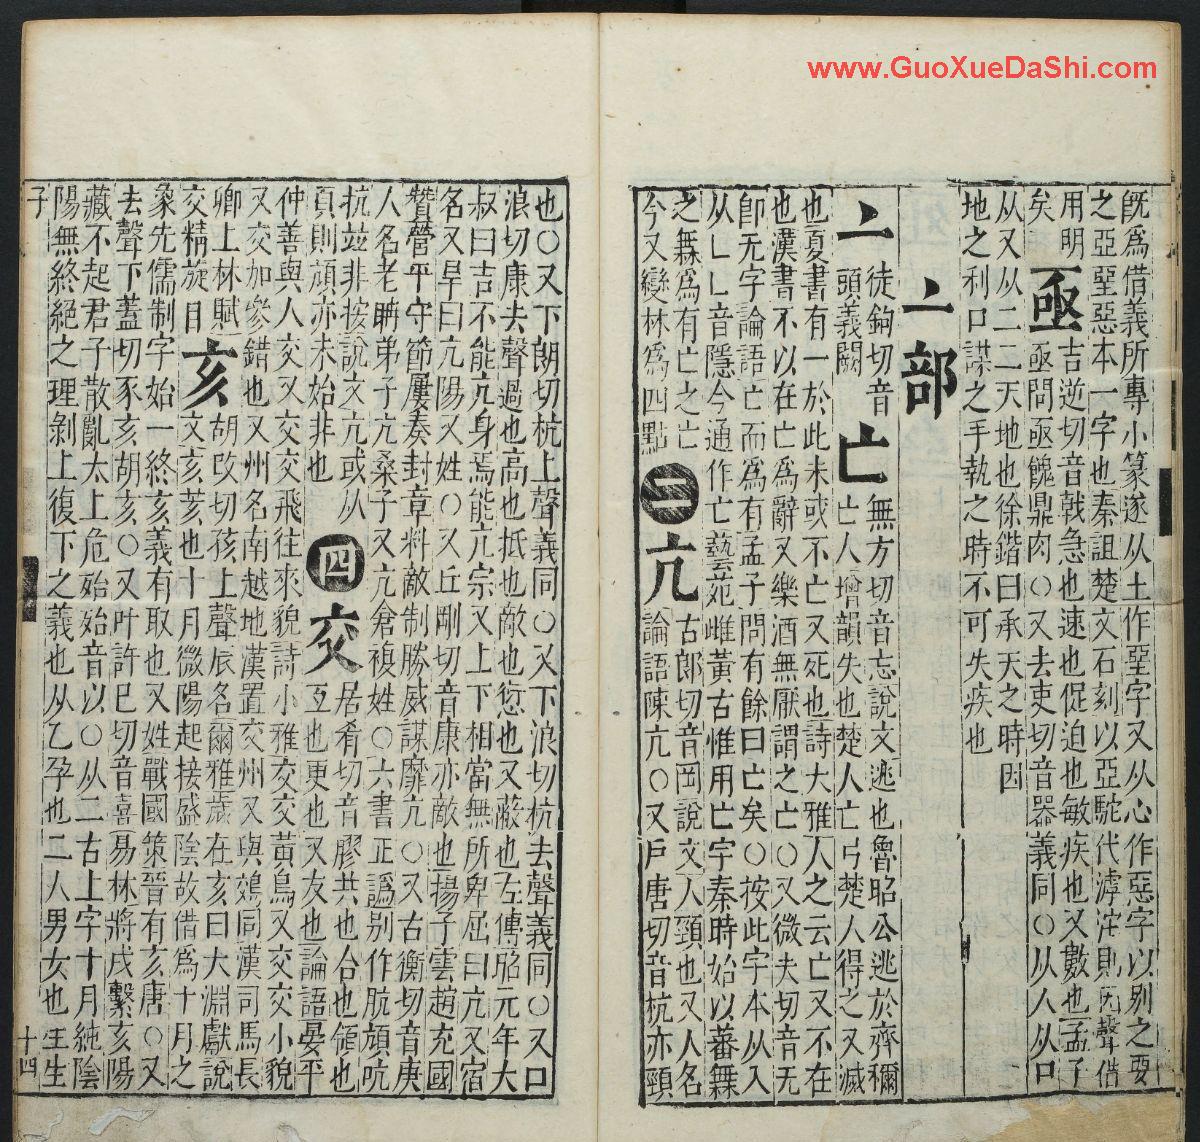 旣爲借義所專小篆遂从土作堊字又从心作惡字以别之要
之亞堊惡本一字也秦詛楚文石刻以亞駝代滹沱則旡聲借
用明
矣
亟
吉逆切音戟急也速也促迫也敏疾也又數也孟子
亟問亟餽鼎肉○又去吏切音器義同○从人从口
从又从二二天地也徐鍇曰承天之時因
地之利口謀之手執之時不可失疾也
亠部
亠
徒鉤切音
頭義闕
亡
無方切音忘說文逃也魯昭公逃於齊穪
亡人增韻失也楚人亡弓楚人得之又滅
也夏書有一於此未或不亡又死也詩大雅人之云亡又不在
也漢書不以在亡爲辭又樂酒無厭謂之亡○又微夫切音無
卽无字論語亡而爲有孟子問有餘曰亡矣○按此字本从入
从乚乚音隱今通作亡藝苑雌黃古惟用亡字秦時始以蕃橆
之橆爲有亡之亡
今又變林爲四點
二
亢
古郎切音岡說文人頸也又人名
論語陳亢○又戶唐切音杭亦頸
也○又下朗切杭上聲義同○又下浪切杭去聲義同○又口
浪切康去聲過也高也抵也敵也愆也又蔽也左傳昭元年大
叔曰吉不能亢身焉能亢宗又上下相當無所卑屈曰亢又宿
名又旱曰亢陽又姓○又丘剛切音康亦敵也揚子雲趙充國
贊營平守節屢奏封章料敵制勝威謀靡亢○又古衡切音庚
人名老聃弟子亢桑子又亢倉複姓○六書正譌别作肮頏吭
抗竝非按說文亢或从
頁則頏亦未始非也
四
交
居肴切音膠共也合也領也
互也更也又友也論語晏平
仲善與人交又交交飛往來貌詩小雅交交黃鳥又交交小貌
又交加參錯也又州名南越地漢置交州又與鵁同漢司馬長
卿上林賦
交精旋目
亥
胡改切孩上聲辰名爾雅歲在亥曰大淵獻說
文亥荄也十月微陽起接盛陰故借爲十月之
亥先儒制字始一終亥義有取也又姓戰國策晉有亥唐○又
去聲下蓋切豕亥胡亥○又叶許巳切音喜易林將戌繫亥陽
藏不起君子散亂太上危殆殆音以○从二古上字十月純陰
陽無終絕之理剝上復下之義也从乙孕也二人男女也壬生
子
十四
www.GuoXueDaShi.com